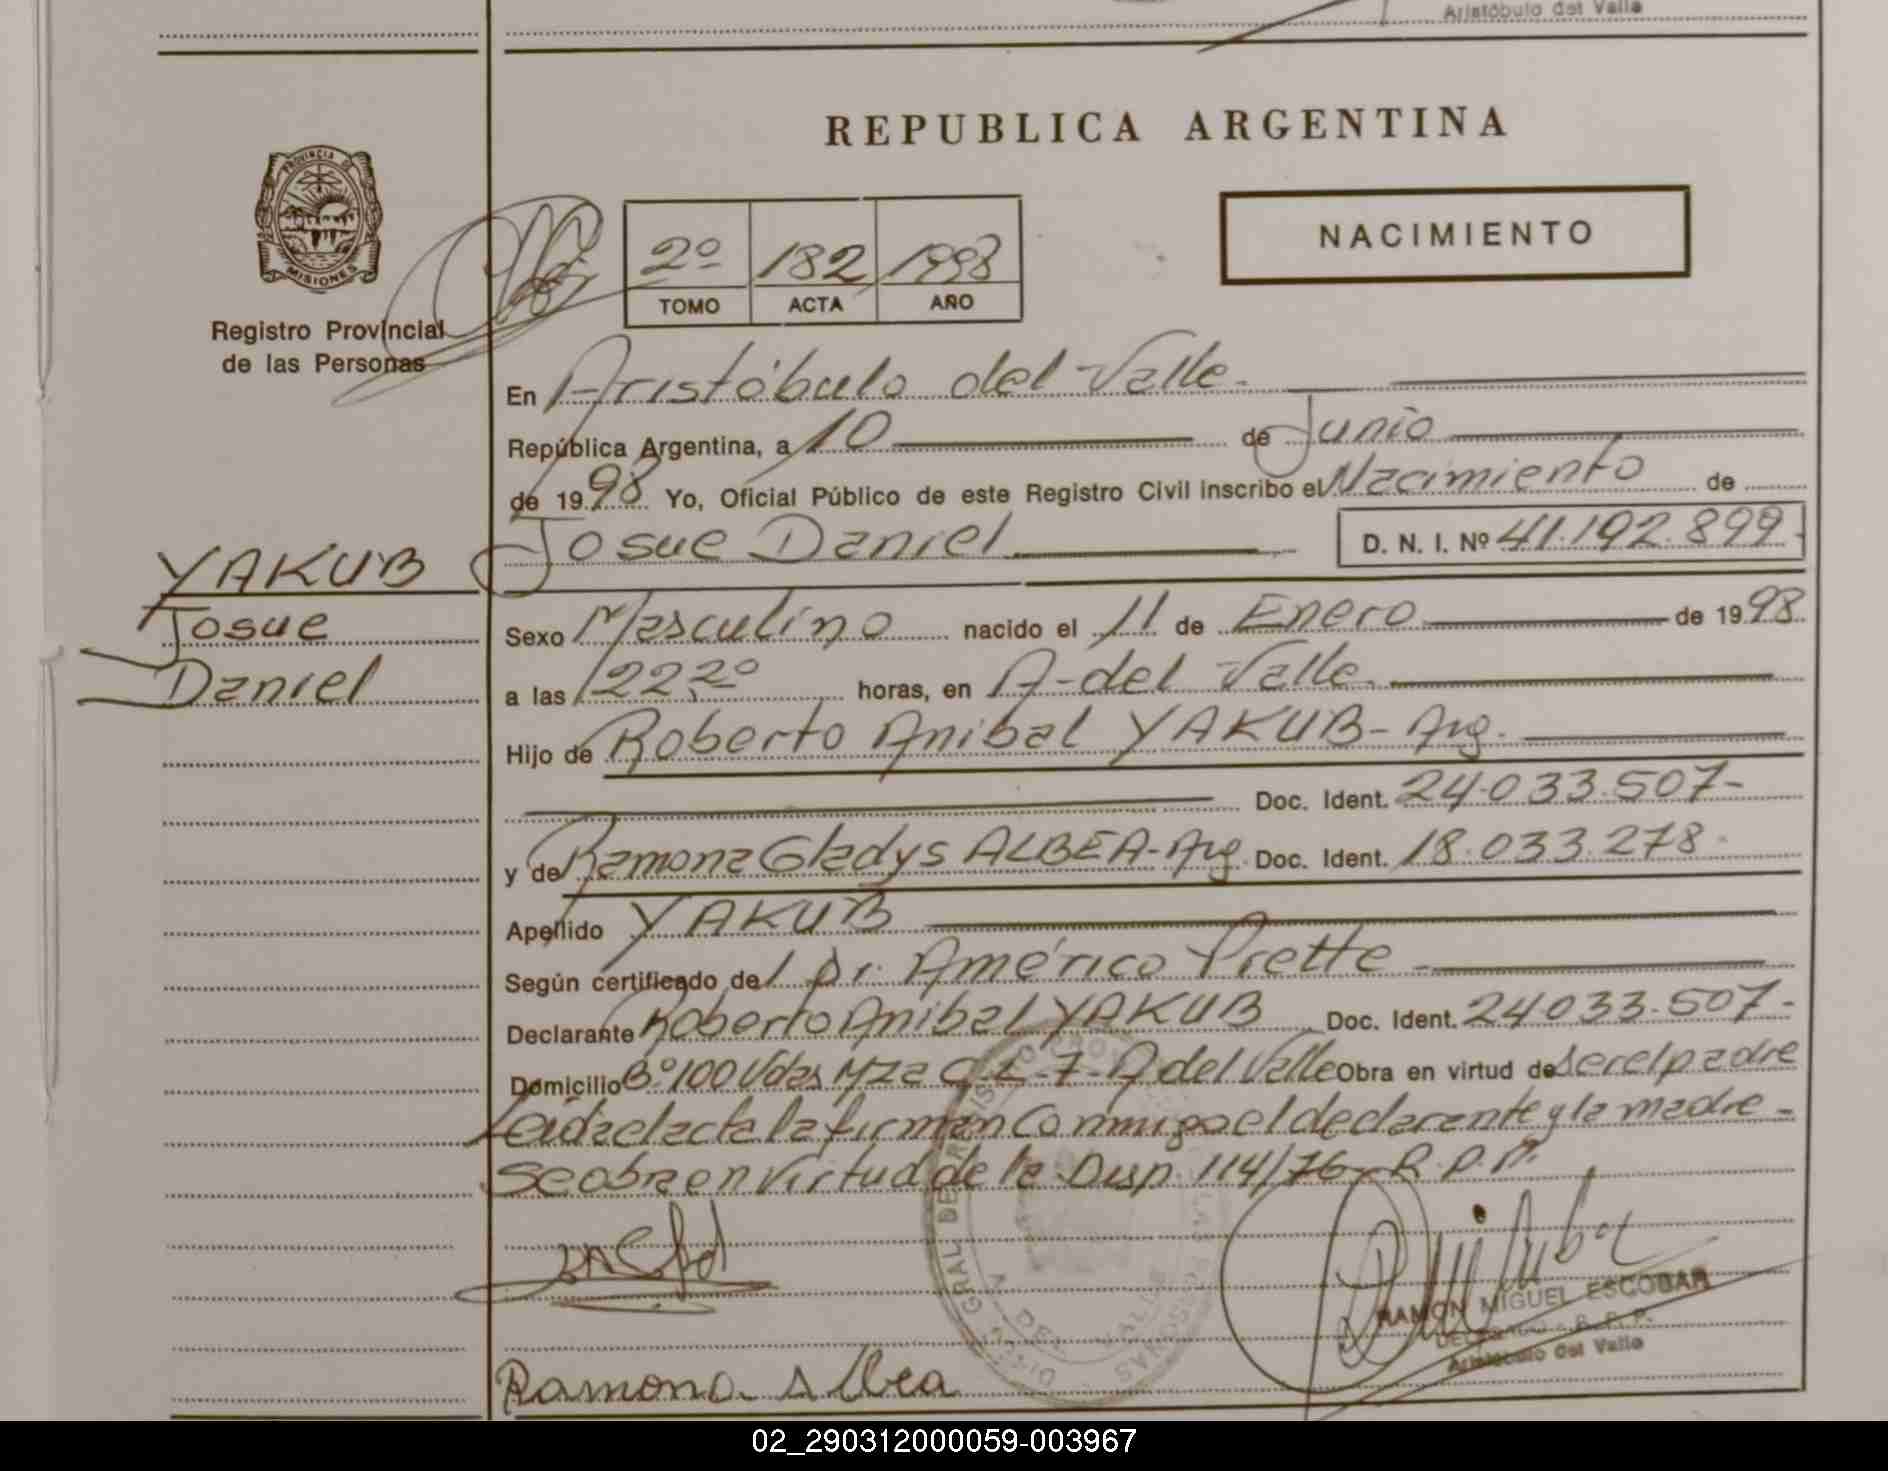 Aristóbulo del Valle
REPUBLICA ARGENTINA
PROVINCIA DE
MISIONES
Registro Provincial
de las Personas
2º 182 1998
TOMO ACTA AÑO
NACIMIENTO
En Aristóbulo del Valle.
República Argentina, a 10 de Junio
de 1998 Yo, Oficial Público de este Registro Civil inscribo el Nacimiento de
Josue Daniel D. N. I. Nº 41.192.899
YAKUB
Josue
Daniel
Sexo Masculino nacido el 11 de Enero de 1998
a las 22,20 horas, en A- del Valle.
Hijo de Roberto Anibal YAKUB- Arg.
Doc. Ident. 24.033.507-
y de Ramona Gladys ALBEA- Arg. Doc. Ident. 18.033.278.
Apellido YAKUB
Según certificado del Dr. Américo Prette
Declarante Roberto Anibal YAKUB Doc. Ident. 24.033.507-
Domicilio Bº 100 Vdas Mza C-L-7- A del Valle Obra en virtud de ser el padre
Leida el acta la firman conmigo el declarante y la madre-
se obra en virtud de la Disp. 114/76- R.P.P.
RAMON MIGUEL ESCOBAR
Aristóbulo del Valle
Ramona Albea
02_290312000059-003967